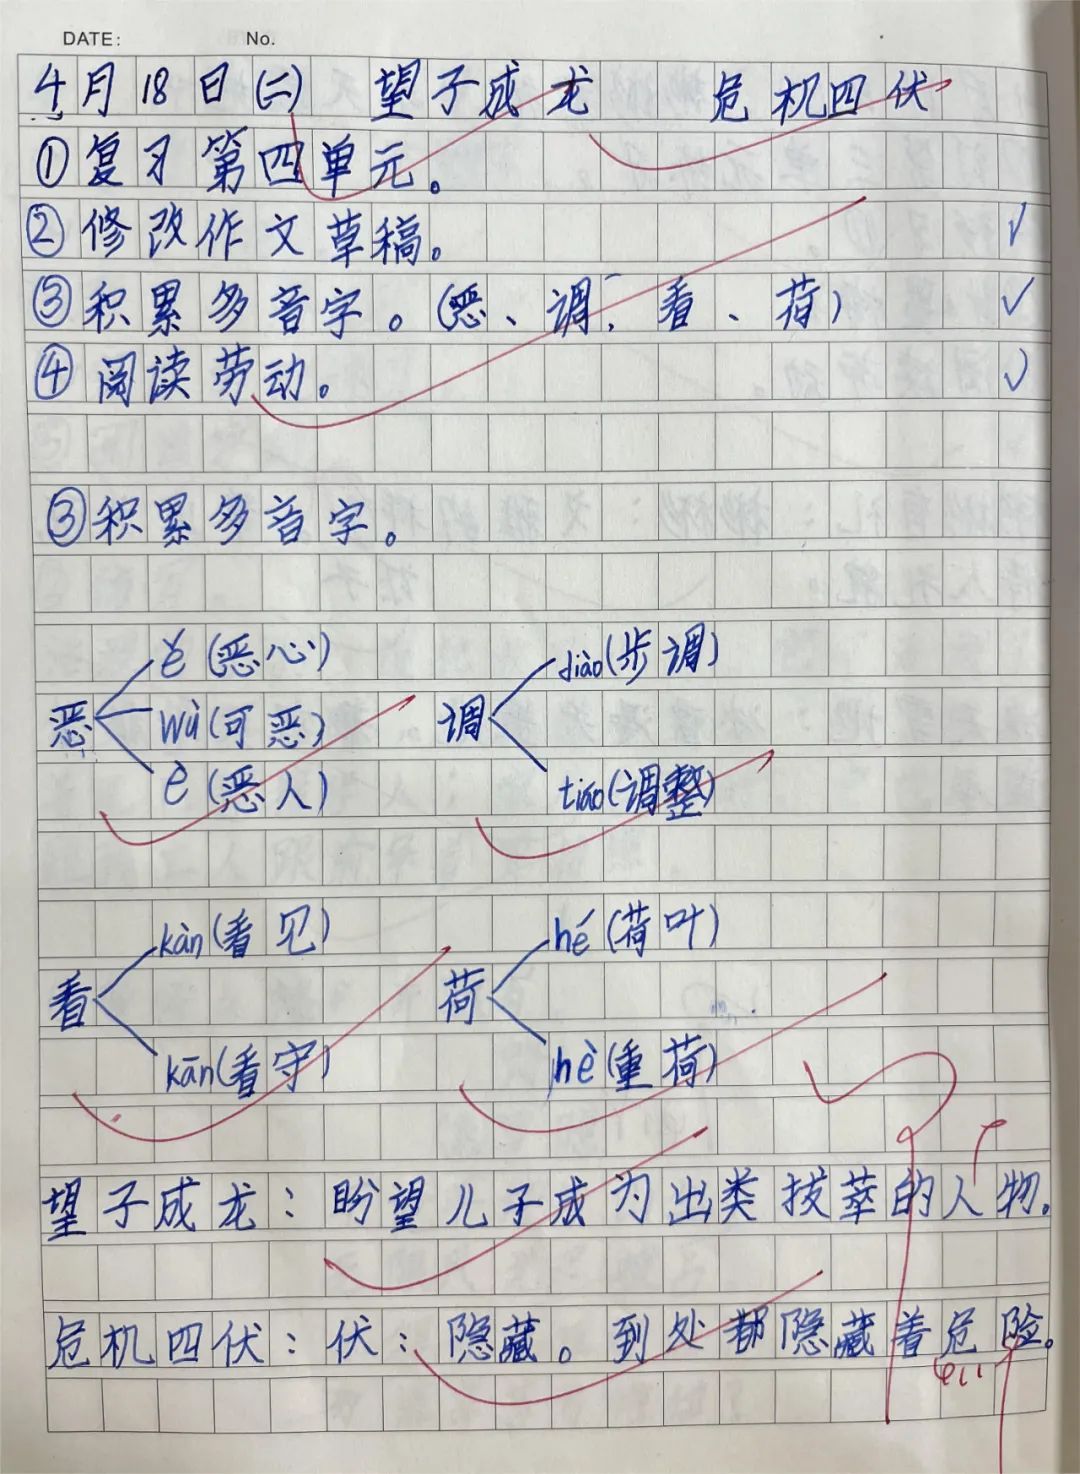 DATE: No.
4月18日(二) 望子成龙 危机四伏
①复习第四单元。
②修改作文草稿。
③积累多音字。(恶、调、看、荷)
④阅读劳动。
③积累多音字。
恶 ě(恶心) wù(可恶) è(恶人)
调 diào(步调) tiáo(调整)
看 kàn(看见) kān(看守)
荷 hé(荷叶) hè(重荷)
望子成龙：盼望儿子成为出类拔萃的人物。
危机四伏：伏：隐藏。到处都隐藏着危险。